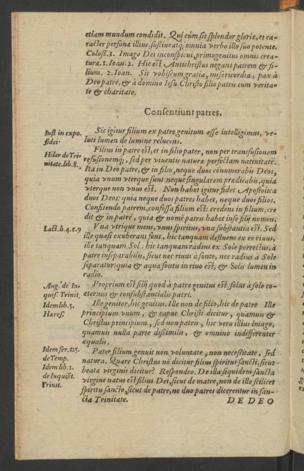 etiam mundum condidit. Qui cùm sit splendor gloriæ, et ca-
racter personæ illius, sustinatq; omnia verbo illo suo potente.
Coloss. 1. Imago Dei inconspicui, primogenitus omnis crea-
turæ. 1. Ioan. 2. Hic est Antichristus negans patrem & fi-
lium. 2. Ioan. Sit vobiscum gratia, misericordia, pax à
Deo patre, & à domino Iesu Christo filio patris cum verita-
te & charitate.
Consentiunt patres.
Iust in expo.
fidei
Sic igitur filium ex patre genitum esse intelligimus, ve-
luti lumen de lumine relucens.
Hilar de Tri-
nitate. lib. 8.
Filius in patre est, et in filio pater, non per transfusionem
refusionemq;, sed per viuentis naturæ perfectam natiuitatem.
Ita in Deo patre, & in filio, neque duos connumerabis Deos,
quia vnum vterque sunt: neque singularem prædicabis, quia
vterque non vnus est. Non habet igitur fides Apostolica
duos Deos: quia neque duos patres habet, neque duos filios.
Confitendo patrem, confessa filium est: credens in filium, cre
dit & in patre, quia & nomen patris habet in se filij nomen.
Lact. li. 4. c. 9
Vna vtrique mens, vnus spiritus, vna substantia est. Sed
ille quasi exuberans fons, hic tanquam defluens ex eo riuus,
ille tanquam Sol: hic tanquam radius ex Sole porrectus, à
patre inseparabilis, sicut nec riuus à fonte, nec radius à Sole
separatur: quia & aqua fontis in riuo est, & Solis lumen in
radio.
Aug. de In-
quis. Trinit.
Proprium est filij quod à patre genitus est solus à solo co-
eternus & consubstantialis patri.
Idem lib. 5.
Hæres.
Ille genitor, hic genitus. Ille non de filio, hic de patre Ille
principium vnum, & caput Christi dicitur, quamuis &
Christus principium, sed non patris, hic vero illius imago,
quamuis nulla parte dissimilis, & omnino indifferenter
equalis.
Idem ser. 125
de Temp.
Idem lib. 1.
de Inquisit.
Trinit.
Pater filium genuit non voluntate, nec necessitate, sed
natura. Quare Christus nō dicitur filius spiritus sancti, sicut
beatæ virginis dicitur? Respondeo. De illa siquidem sancta
virgine natus est filius Dei, sicut de matre, non de ille scilicet
spiritu sancto, sicut de patre, ne duo patres dicerentur in san-
cta Trinitate.
DE DEO